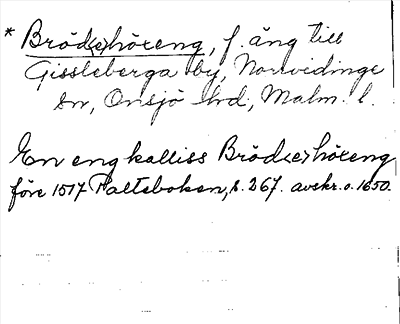 * Bröd<e>höreng, f. äng till
Gissleberga by, Norrvidinge
sn, Onsjö hd, Malm. l.
En eng kalliss Bröd<e>höreng
före 1517 Palteboken, s. 267. avskr. o. 1650.